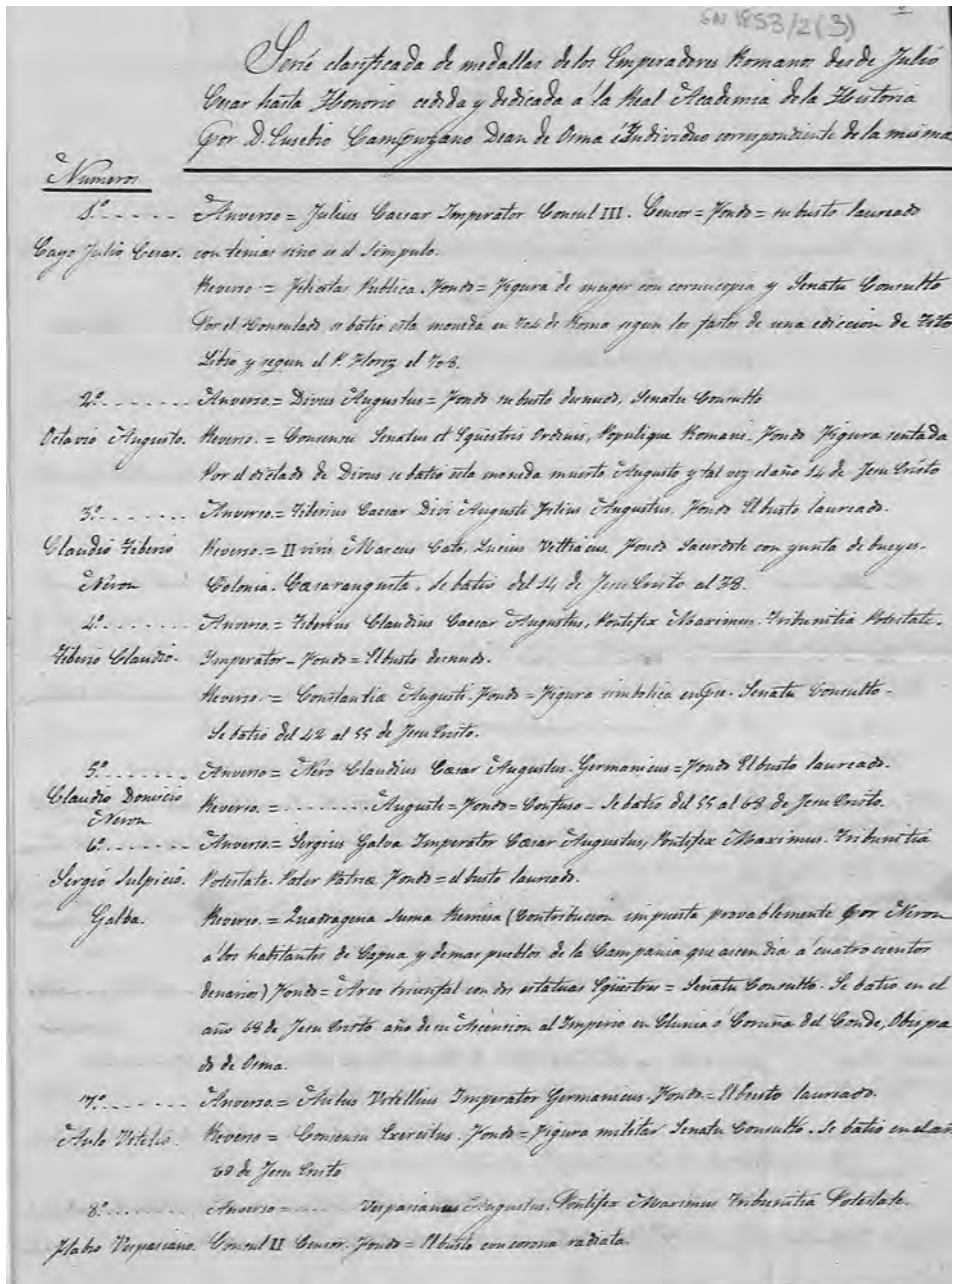 GN 1853/2(3)
Serie clasificada de medallas de los Emperadores Romanos desde Julio
Cesar hasta Honorio cedida y dedicada á la Real Academia de la Historia
por D. Eusebio Campuzano Dean de Osma é Individuo correspondiente de la misma
Numeros
1º Anverso = Julius Caesar Imperator Consul III. Censor = Fondo = su busto laureado
Cayo Julio Cesar. con tenias sino es el Simpulo.
Reverso = Felicitas Publica. Fondo = Figura de muger con cornucopia y Senatu Consulto
Por el Consulado se batio esta moneda en 704 de Roma segun los fastos de una ediccion de Tito
Libio y segun el P. Florez el 708.
2º Anverso. = Divus Augustus = Fondo su busto desnudo, Senatu Consulto
Octavio Augusto. Reverso. = Consensu Senatus et Eqüestris Ordinis, Populique Romani. Fondo Figura sentada
Por el dictado de Divus se batio esta moneda muerto Augusto y tal vez el año 14 de Jesu Cristo
3º Anverso. = Tiberius Caesar Divi Augusti Filius Augustus. Fondo El busto laureado.
Claudio Tiberio Reverso. = II viris Marcus Cato, Lucius Vettiacus. Fondo Sacerdote con yunta de bueyes.
Neron Colonia. Cæsaraugusta. Se batio del 14 de Jesu Cristo al 38.
4º Anverso. = Tiberius Claudius Caesar Augustus, Pontifex Maximus. Tribunitia Potestate.
Tiberio Claudio. Imperator _ Fondo = El busto desnudo.
Reverso. = Constantiæ Augusti. Fondo = Figura simbolica en pie. Senatu Consulto _
Se batio del 42 al 55 de Jesu Cristo.
5º Anverso = Nero Claudius Cæsar Augustus. Germanicus = Fondo El busto laureado.
Claudio Domicio Reverso. = Augusti = Fondo = Confuso _ Se batio del 55 al 68 de Jesu Cristo.
Neron
6º Anverso. = Sergius Galva Imperator Cæsar Augustus, Pontifex Maximus. Tribunitia
Sergio Sulpicio. Potestate. Pater Patriæ Fondo = el busto laureado.
Galba. Reverso. = Quadragena Suma Remisa (Contribucion impuesta provablemente por Neron
á los habitantes de Capua y demas pueblos de la Campania que ascendia á cuatro cientos
denarios) Fondo = Arco triunfal con dos estatuas Eqüestres = Senatu Consulto. Se batio en el
año 68 de Jesu Cristo año de su Ascension al Imperio en Clunia ó Coruña del Conde, Obispa
do de Osma.
7º Anverso. = Aulus Vitellius Imperator Germanicus. Fondo. = El busto laureado.
Aulo Vitelio. Reverso = Consensu Exercitus. Fondo = Figura militar Senatu Consulto. Se batio en el añ
69 de Jesu Cristo
8º Anverso = Vespasianus Augustus. Pontifex Maximus Tribunitia Potestate.
Flabio Vespasiano. Consul II Censor. Fondo = El busto con corona radiata.